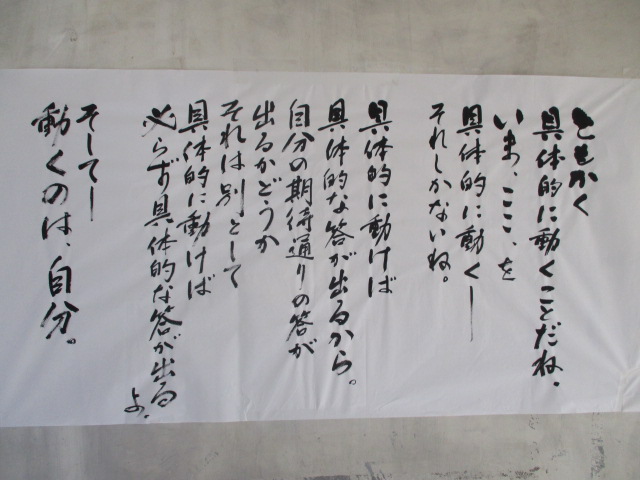 ともかく
具体的に動くことだね。
いま、ここ、を
具体的に動く―
それしかないね。
具体的に動けば
具体的な答が出るから。
自分の期待通りの答が
出るかどうか
それは別として
具体的に動けば
必らず具体的な答が出る
よ。
そして―
動くのは、自分。